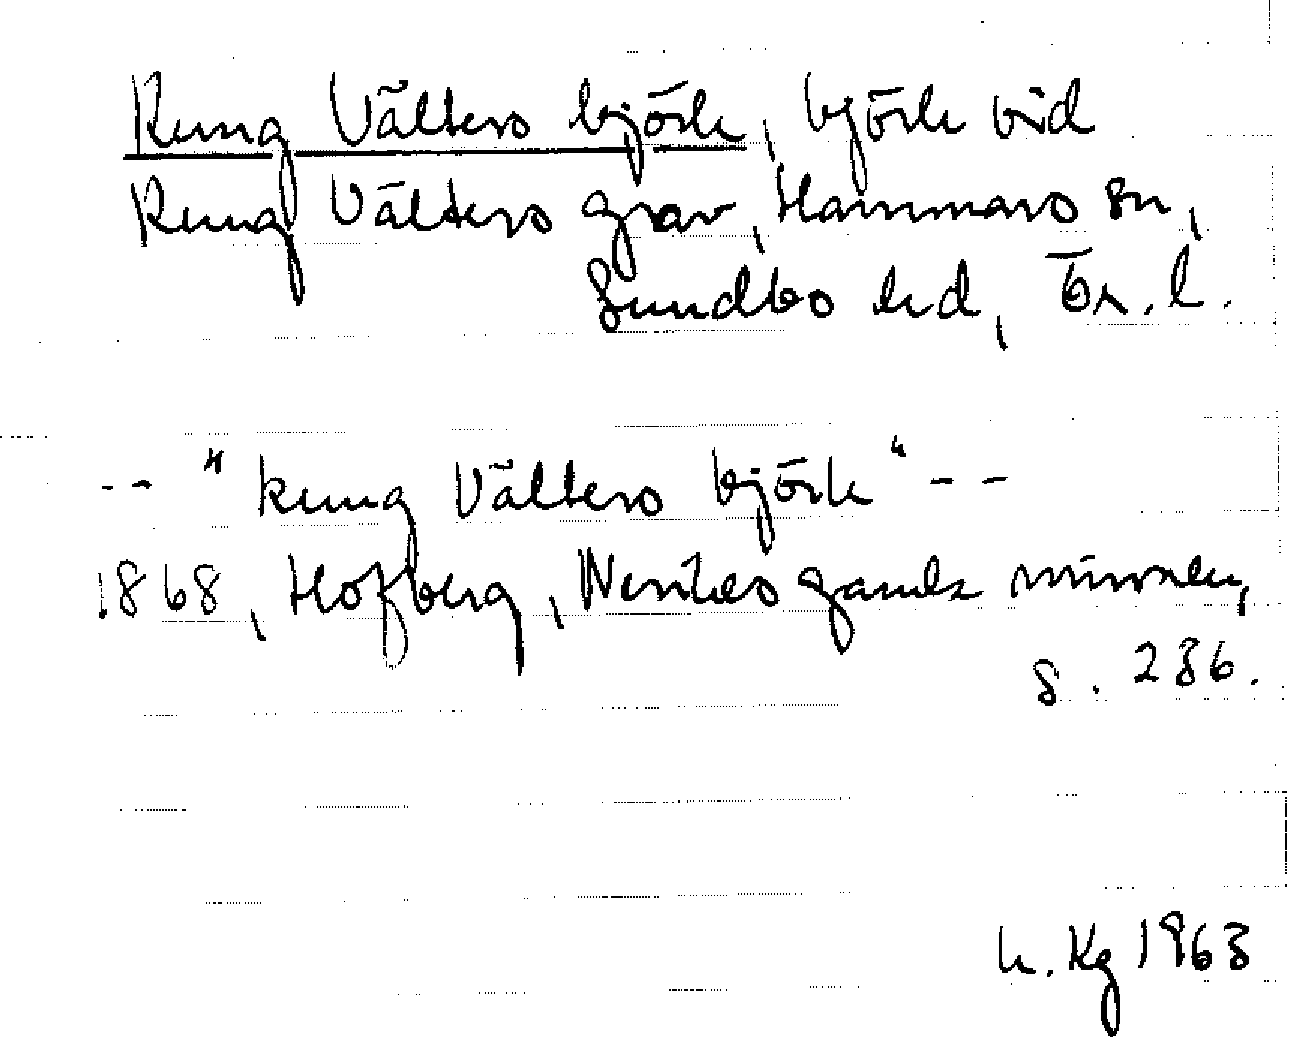 Kung Välters björk, björk vid
Kung Välters grav, Hammars sn,
Sundbo hd, Ör. l.
-- "kung Välters björk" --
1868, Hofberg, Nerikes gamla minnen,
s. 236.
h. Kg 1963